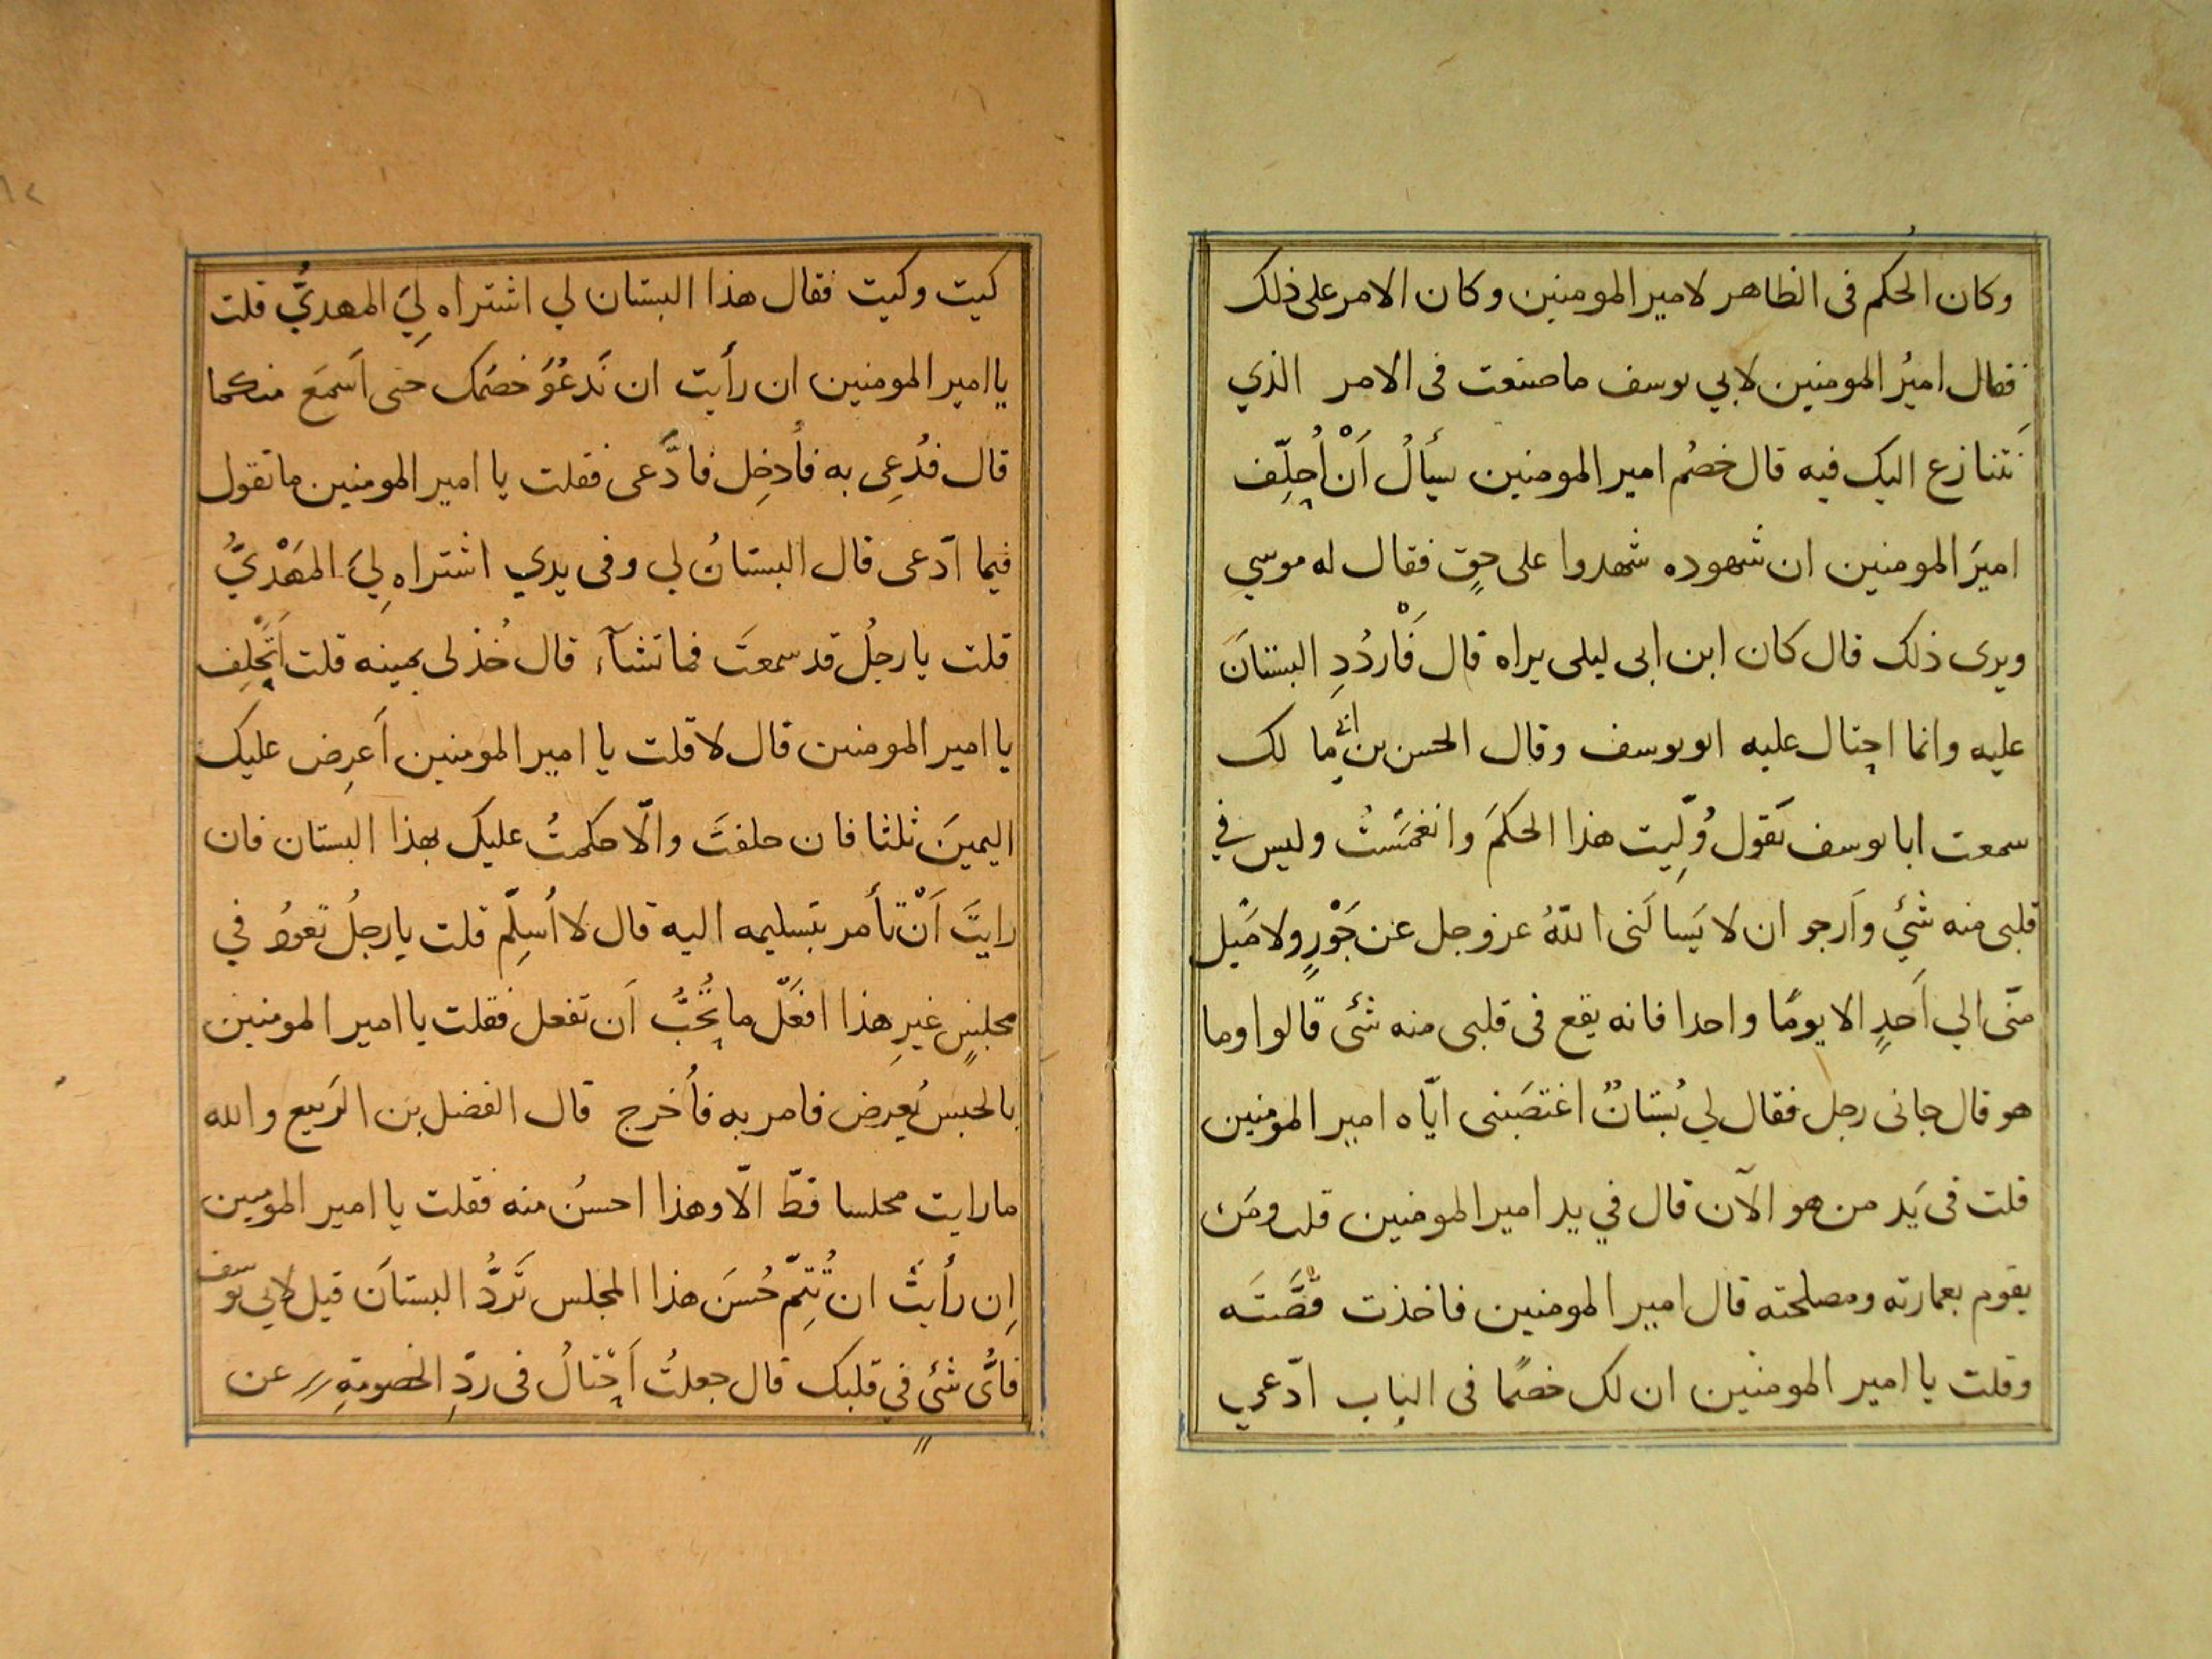 وكان الحُكم فى الظاهر لامير المومنين وكان الامر على ذلك
فقال اميرُ المومنين لابي يوسف ما صنعت فى الامر الذي
نَتنازع اليك فيه قال خصُم امير المومنين يسأَلُ اَنْ اُحلِّف
اميرَ المومنين ان شهوده شهدوا على حقٍ فقال له موسي
ويرى ذلك قال كان ابن ابى ليلى يراه قال فَارْدُدِ البستانَ
عليه وانما احتال عليه ابو يوسف وقال الحسن بن ابى مالك
سمعت ابا يوسف يَقول وُلِّيت هذا الحكمَ وانغمَسْتُ وليس في
قلبى منه شئي وَارجو ان لا يَسالَنى اللّهُ عز وجل عن جَوْرٍ ولا مَيل
منّى الي اَحدٍ الا يومًا واحدا فانه يقع فى قلبى منه شئى قالوا وما
هو قال جانى رجل فقال لي بُستانٌ اغتصَبنى ايّاه امير المومنين
قلت فى يَد من هو الآن قال في يد امير المومنين قلت ومَن
يقوم بعمارته ومصلحته قال امير المومنين فاخذت قصَّتَه
وقلت يا امير المومنين ان لك خصمًا فى الباب ادّعي
كيت وكيت فقال هذا البستان لي اشتراه لِيَ المهديُّ قلت
يا امير المومنين ان رأَيت ان تَدعُوَ خصمَك حتى اَسمَع منكما
قال فدُعِى به فاُدخِل فادَّعى فقلت يا امير المومنين ما تقول
فيما ادّعى قال البستانُ لي وفى يدي اشتراه لِيَ المَهْديُّ
قلت يا رجلُ قد سمعتَ فما تشآء قال خُذ لى يمينه قلت اَتَحْلِف
يا امير المومنين قال لا قلت يا امير المومنين اَعرِض عليك
اليمينَ ثلثا فان حلفتَ والّا حكمتُ عليك بهذا البستان فان
رايتَ اَنْ تأمر بتسليمه اليه قال لا اُسلِّم قلت يا رجلُ تعودُ في
مجلسٍ غيرِ هذا افعَل ما تُحبُّ اَن تفعل فقلت يا امير المومنين
بالحبس يُعرض فامر به فاُخرج قال الفضل بن الرَبيع والله
ما رايت مجلسا قطّ الّا وهذا احسنُ منه فقلت يا امير المومنين
اِن رأيتَ ان تُتِمّ حُسنَ هذا المجلس تَردُّ البستانَ قيل لابي يوسف
فاىُّ شئيٍ في قلبك قال جعلتُ اَحتالُ فى ردِّ الخصومةِ عن